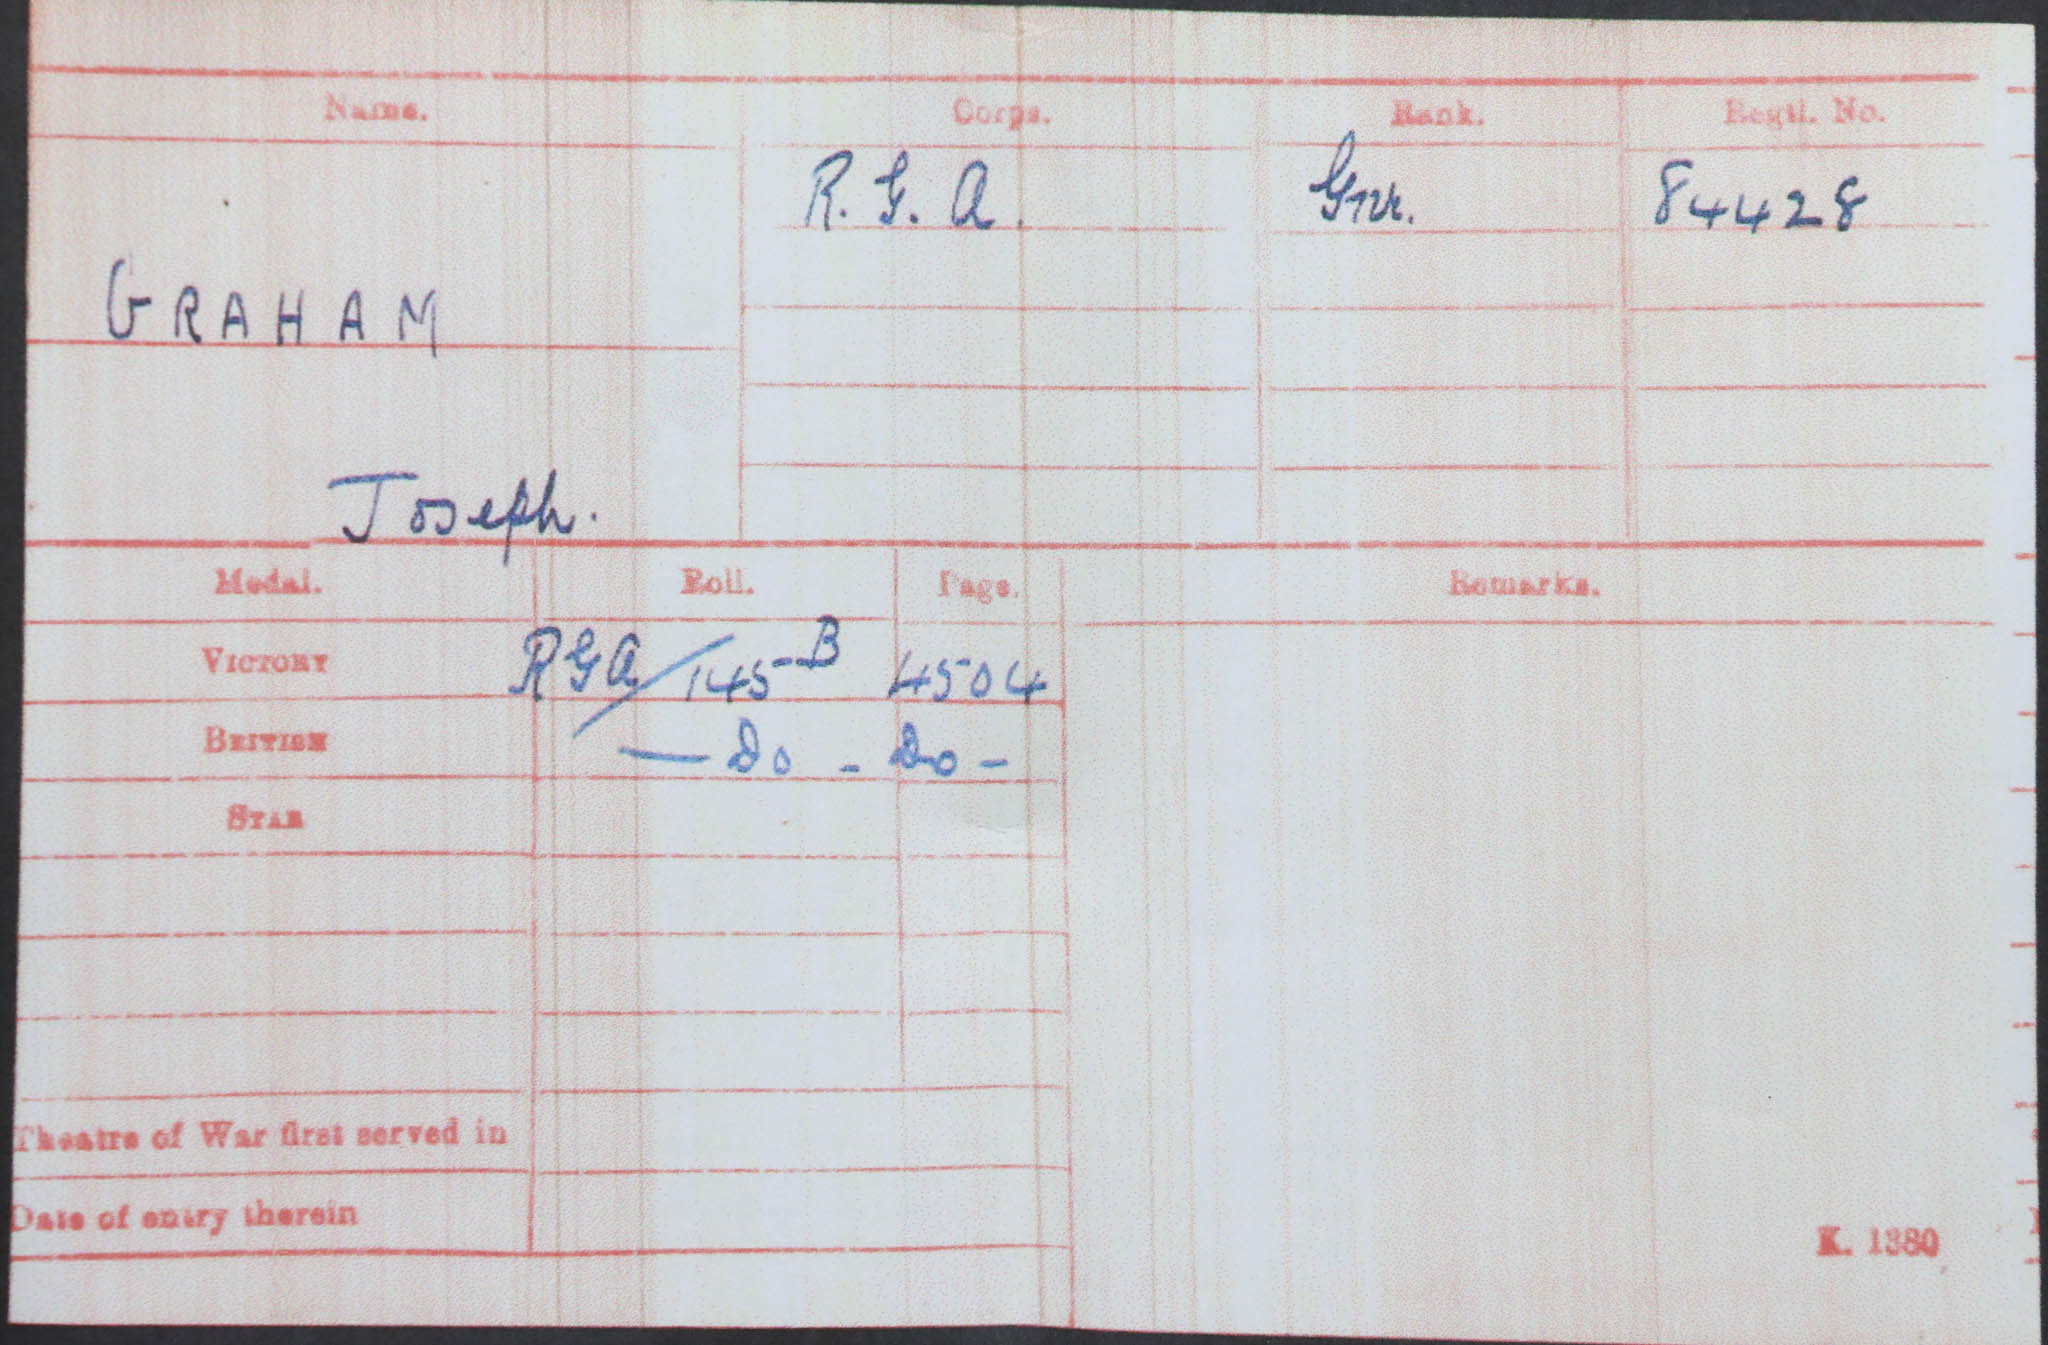 Name. Corps. Rank. Regtl. No.
R. G. A. Gnr. 84428
GRAHAM
Joseph.
Medal. Roll. Page. Remarks.
VICTORY RGA/145 B 4504
BRITISH — Do - Do -
STAR
Theatre of War first served in
Date of entry therein
K. 1380